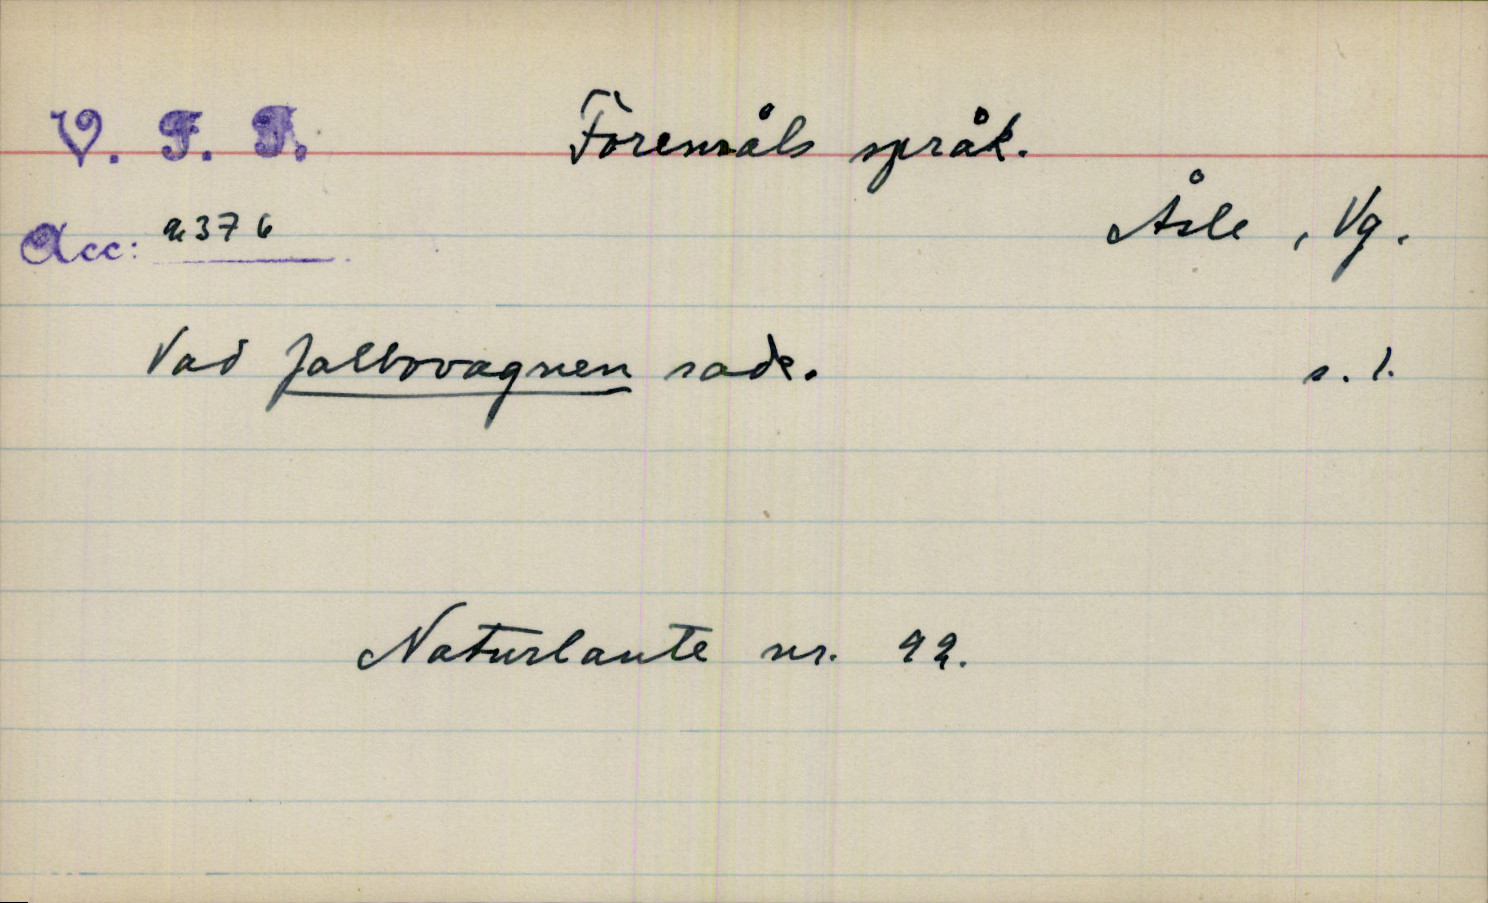 V. F. F.
Föremåls språk.
Acc: 2376
Åsle, Vg.
Vad falbovagnen sade.
s. 1.
Naturlaute nr. 92.